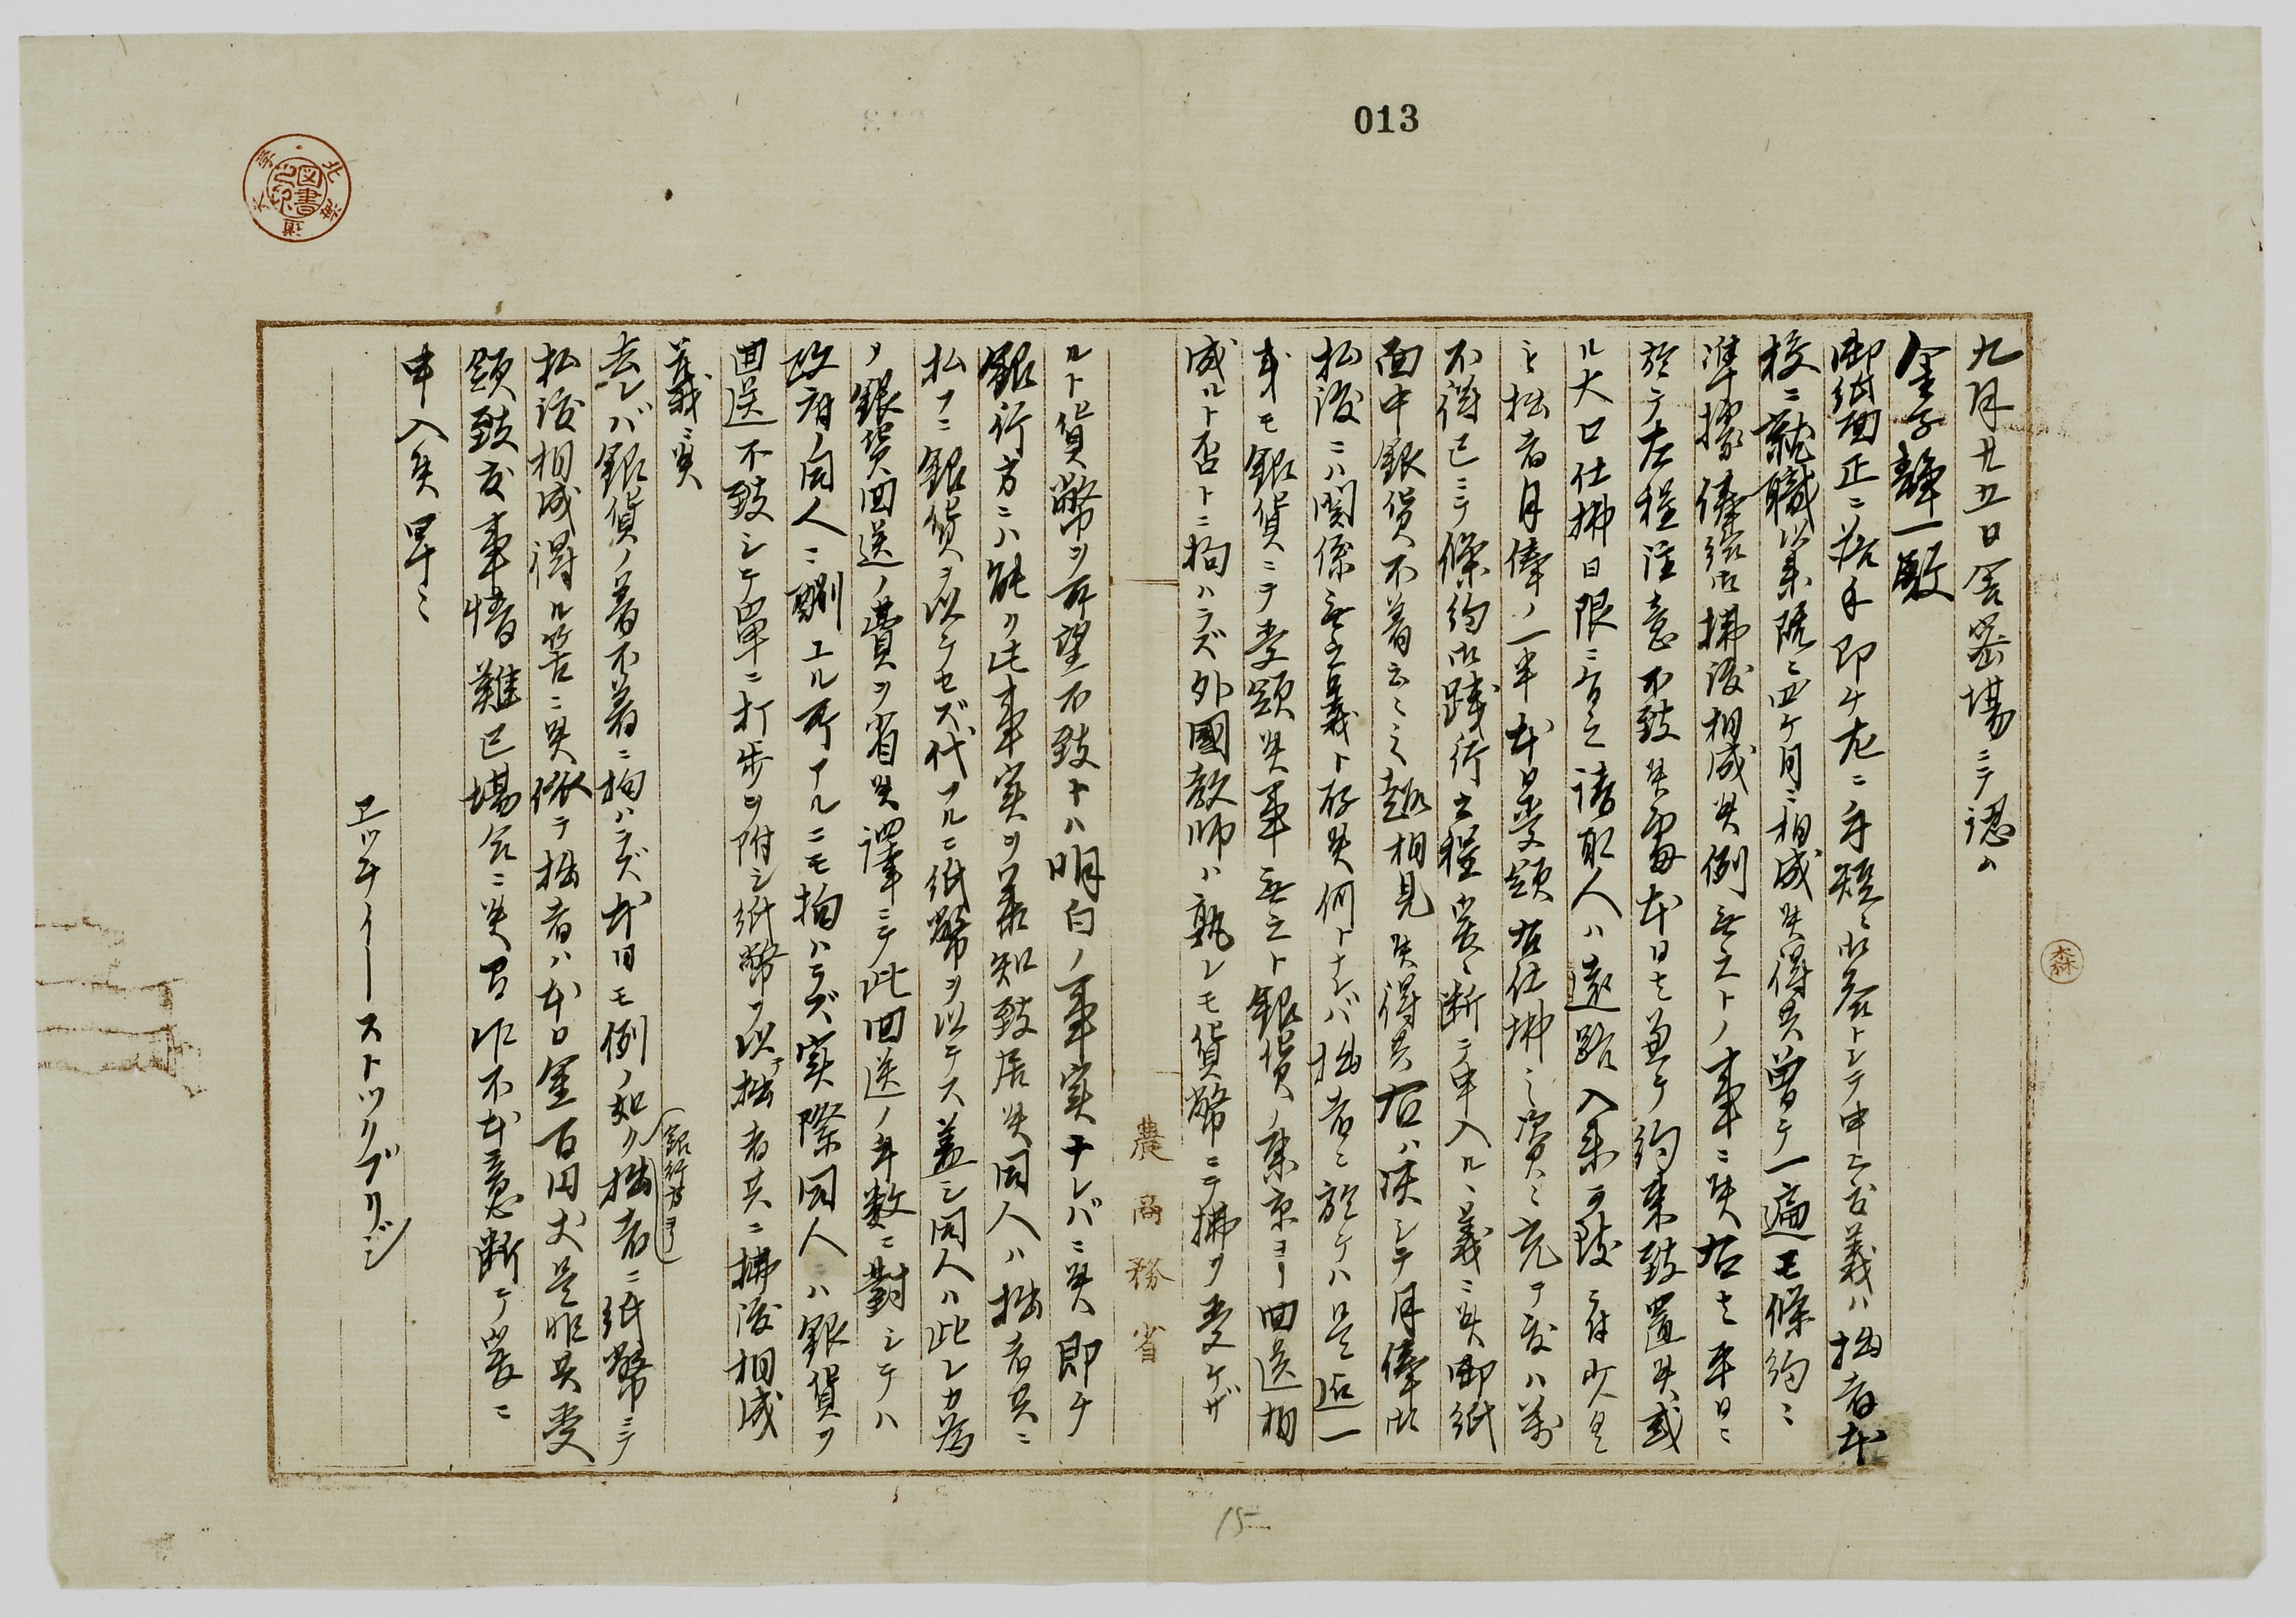 013
九月廿五日舎密場ニテ認ム
金子静一殿
御紙面正ニ落手即チ左ニ手短ニ御答トシテ申上候義ハ拙者本
校ニ就職以来既ニ四ケ月ニ相成候得共曽テ一遍モ條約ニ
準據俸給御拂渡相成候例無之トノ事ニ候右者平日ニ
於テ左程注意不致候処本日者兼テ約束致置候或
ル大口仕拂日限ニ有之請取人ハ遠路入来可致ニ付少クモ
拙者月俸ノ一半本日受領右仕拂之資ニ充テ度ハ万
不得已ニテ條約御践行之程厳ニ断テ申入ルヽ義ニ候御紙
面中銀貨不着云々之趣相見候得共右ハ決シテ月俸御
払渡ニハ関係無之義ト存候何トナレバ拙者ニ於テハ是迄一
才モ銀貨ニテ受領候事無之ト銀貨ノ東京ヨリ回送相
成ルト否トニ拘ハラズ外國教師ハ孰レモ貨幣ニテ拂ヲ受ケザ
農商務省
ルト貨幣ヲ所望不致トハ明白ノ事実ナレバニ候即チ
銀行方ニハ能ク此事実ヲ承知致居候同人ハ拙者共ニ
払フニ銀貨ヲ以テセズ代フルニ紙幣ヲ以テス蓋シ同人ハ此レカ為
メ銀貨回送ノ費ヲ省候譯ニテ此回送ノ手数ニ對シテハ
政府ノ同人ニ酬ユル所アルニモ拘ハラズ実際同人ハ銀貨ヲ
回送不致シテ単ニ打歩ヲ附シ紙幣ヲ以テ拙者共ニ拂渡相成
義ニ候
去レバ銀貨ノ着不着ニ拘ハラズ本日モ例ノ如ク(銀行方ヨリ)拙者ニ紙幣ニテ
払渡相成得ル筈ニ候依テ拙者ハ本日金百円丈是非共受
領致度事情難已場合ニ候間乍不本意断テ厳ニ
申入候畢ニ
エッチイーストックブリジ
森
15